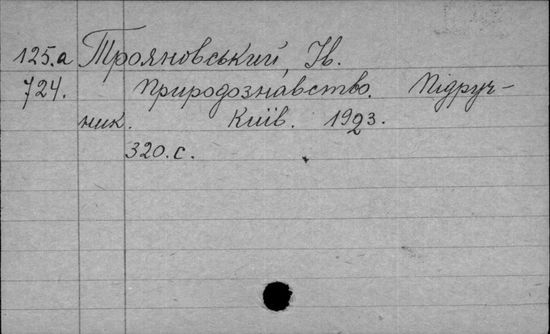 125.а Трояновський, Ів.
724. Природознавство. Підруч-
ник. Київ. 1923.
320.с.